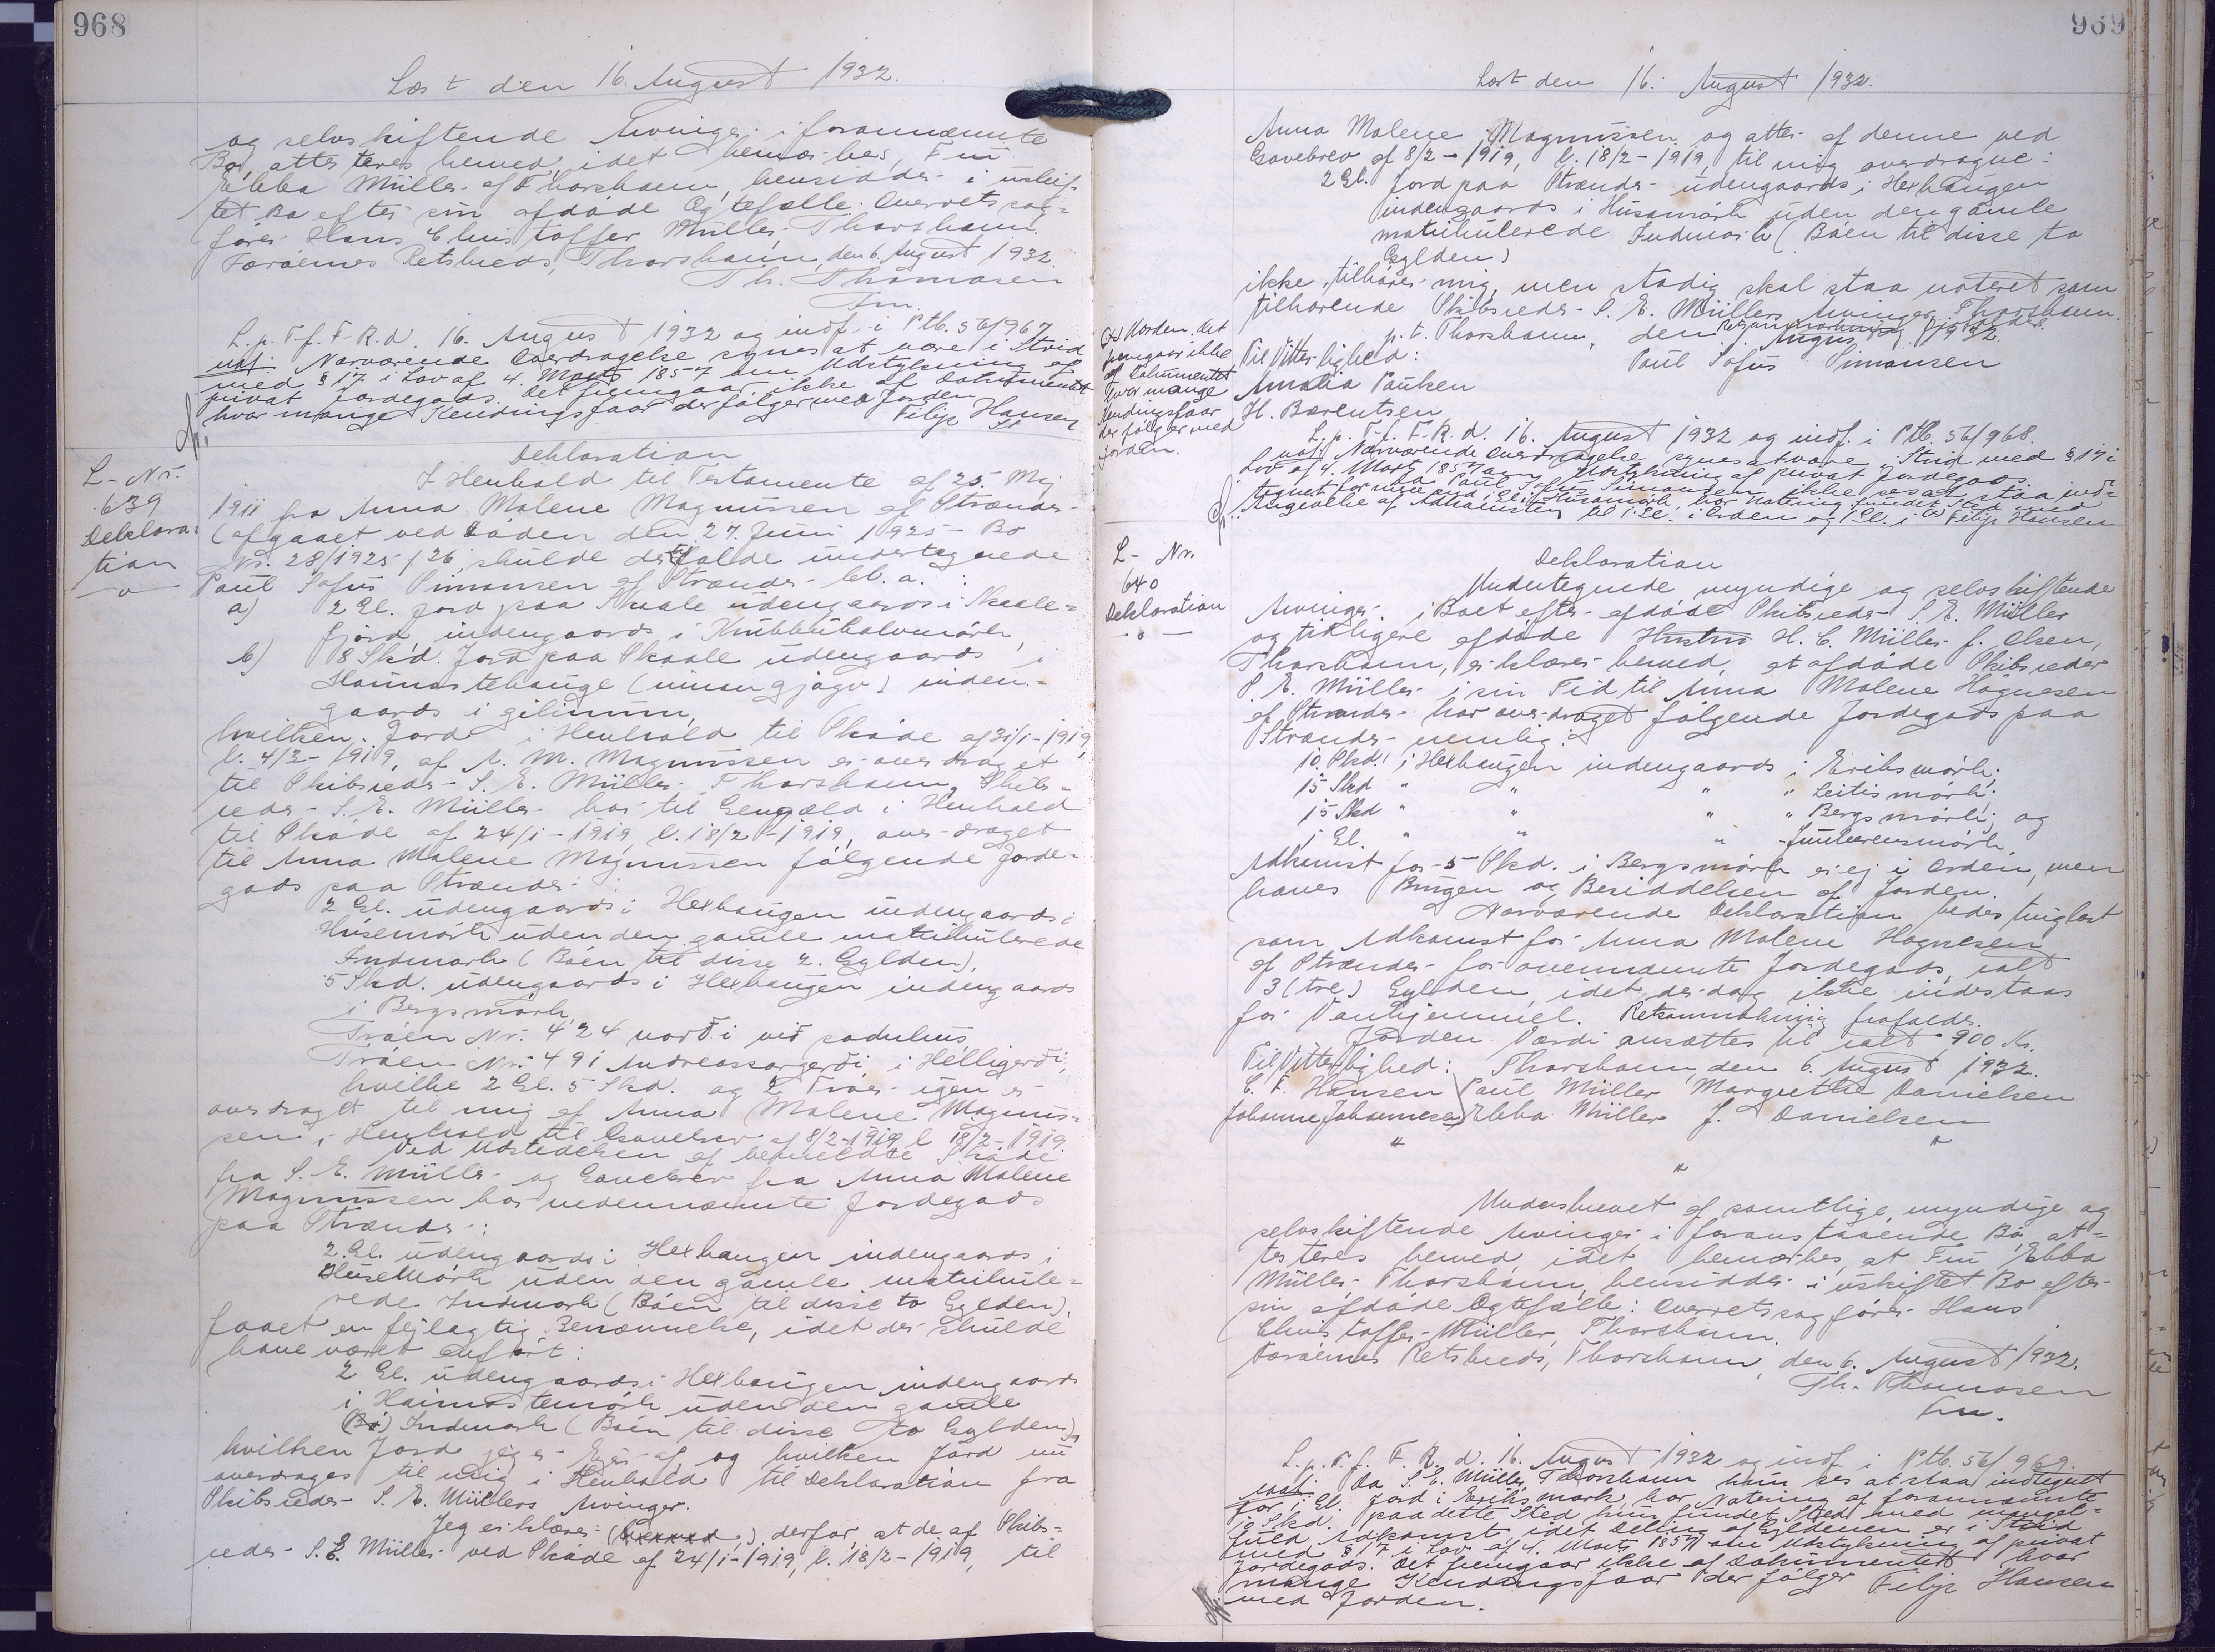 968
Læst den 16. August 1932.
og selvskiftende Arvinger i forannævnte
Bo, attesteres herved, idet bemærkes, Fru
Ebba Müller af Thorshavn, hensidder i uskif-
tet Bo efter sin afdøde Ægtefælle: Overretssag-
fører Hans Christoffer Müller, Thorshavn.
Færøernes Retskreds, Thorshavn, den 6. August 1932.
Th. Thomasen
fm.
L. p. T. f. F. R. d. 16. August 1932 og indf. i Ptb. 56/967
Nærværende Overdragelse synes at være i Strid
med § 17 i Lov af 4. Marts 1857 om Udstykning af
privat Jordegods. Det fremgaar ikke af Dokumentet
hvor mange Kendingsfaar der følger med Jorden
Filip Hansen
L- Nr.
639
Deklara-
tion
Deklaration
I Henhold til Testamente af 25. Maj
1911 fra Anna Malene Magnussen af Strænder
(afgaaet ved Døden den 27. Juni 1925 - Bo
Nr. 28/1925/26, skulde der tilfalde undertegnede
Paul Sofus Simonsen af Strænder bl. a. :
a) 2 Gl. Jord paa Skaale udengaards i Skaale-
fjord, indengaards i Krubbuhalvmørk,
b) 8 Skd. Jord paa Skaale udengaards i
Hamrastehauge (innan gjógv) inden-
gaards i gilinum,
hvilken Jord i Henhold til Skøde af 31/1-1919,
l. 4/3-1919, af A. M. Magnussen er overdraget
til Skibsreder S. E. Müller, Thorshavn. Skibs-
reder S. E. Müller har til Gengæld i Henhold
til Skøde af 24/1-1919, l. 18/2-1919, overdraget
til Anna Malene Magnussen følgende Jorde-
gods paa Strænder :
2 Gl. udengaards i Hexhaugen indengaards i
Húsemørk uden den gamle matrikulerede
Indmark (Bøen til disse 2. Gylden),
5 Skd. udengaards i Hexhaugen indengaards
i Bergsmørk,
Trøen Nr. 424 norð i við sodulhus,
Trøen Nr. 491 Andreassargerði i Helligerði,
hvilke 2 Gl. 5 Skd. og 2 Trøer igen er
overdraget til mig af Anna Malene Magnus-
sen i Henhold til Gavebrev af 8/2-1919 l 18/2-1919.
Ved Udstedelsen af bemeldte Skøde
fra S. E. Müller og Gavebrev fra Anna Malene
Magnussen har nedennævnte Jordegods
paa Strænder :
2. Gl. udengaards i Hexhaugen indengaards i
HuseMørk uden den gamle matrikule-
rede Indmark (Bøen til disse to Gylden),
faaet en fejlagtig Benævnelse, idet der skulde
have været anført :
2 Gl. udengaards i Hexhaugen indengaards
i Hamrastemørk uden den gamle
(Bø) Indmark (Bøen til disse to Gylden),
hvilken Jord jeg er Ejer af, og hvilken Jord nu
overdrages til mig i Henhold til Deklaration fra
Skibsreder S. E. Müllers Arvinger.
Jeg erklærer (herved) derfor, at de af Skibs-
reder S. E. Müller ved Skøde af 24/1-1919, l. 18/2-1919, til
969
Læst den 16. August 1932.
Anna Malene Magnussen og atter af denne ved
Gavebrev af 8/2-1919, l. 18/2-1919 til mig overdragne:
2 Gl. Jord paa Strænder udengaards i Hexhaugen
indengaards i Húsamørk uden den gamle
matrikulerede Indmark (Bøen til disse to
Gylden)
ikke tilhører mig, men stadig skal staa noteret som
tilhørende Skibsreder S. E. Müllers Arvinger, Thorshavn.
Retsanmærkning frafaldes.
p. t. Thorshavn, den 8. August 1932.
Til Vitterlighed:
Paul Sofus Simonsen
Amalia Poulsen
H. Barentsen
(x) Jorden. Det
fremgaar ikke
af Dokumentet
hvor mange
Kendingsfaar
der følger med
Jorden.
L. p. T. f. F. R. d. 16. August 1932 og indf. i Ptb. 56/968.
Nærværende Overdragelse synes at være i Strid med § 17 i
Lov af 4. Marts 1857 om Udstykning af privat Jordegods.
Da Paul Sofus Simonsen ikke ses at staa ind-
tegnet for mere end 1 Gl. i Húsamørk, har Notering fundet Sted med
Angivelse af Adkomsten til 1 Gl. i Orden og 1 Gl. i (x) Filip Hansen
L- Nr.
640
Deklaration
Deklaration
Undertegnede myndige og selvskiftende
Arvinger i Boet efter afdøde Skibsreder S. E. Müller
og tidligere afdøde Hustru H. C. Müller f. Olsen,
Thorshavn, erklærer herved, at afdøde Skibsreder
S. E. Müller i sin Tid til Anna Malene Høgnesen
af Strænder har overdraget følgende Jordegods paa
Strænder nemlig:
10. Skd. i Hexhaugen indengaards i Eriksmørk;
15 Skd " " " " Leitismørk;
15 Skd " " " " Bergsmørk; og
1 Gl. " " "
Adkomst for 5 Skd. i Bergsmørk er ej i Orden, men
haves Brugen og Besiddelsen af Jorden.
Nærværende Deklaration bedes tinglæst
som Adkomst for Anna Malene Høgnesen
af Strænder for ovennævnte Jordegods, ialt
3 (tre) Gylden, idet der dog ikke indestaas
for Vanhjemmel. Retsanmærkning frafaldes.
Jordens Værdi ansættes til ialt 900 Kr.
Til Vitterlighed: Thorshavn, den 6. August 1932.
E. F. Hansen Paul Müller Margrethe Danielsen
Johanne Johannesen Ebba Müller J. Danielsen
" "
"
Underskrevet af samtlige, myndige og
selvskiftende Arvinger i foranstaaende Bo, at-
testeres herved, idet bemærkes, at Fru Ebba
Müller, Thorshavn, hensidder i uskiftet Bo efter
sin afdøde Ægtefælle: Overretssagfører Hans
Christoffer Müller, Thorshavn.
Færøernes Retskreds, Thorshavn, den 6. August 1932.
Th. Thomasen
fm.
L. p. T. f. F. R. d. 16. August 1932 og indf. i Ptb. 56/969.
Da S. E. Müller, Thorshavn kun ses at staa indtegnet
for 1 Gl. Jord i Eriksmørk, har Notering af forannævnte
10 Skd. paa dette Sted kun fundet Sted med mangel-
fuld Adkomst, idet Deling af Gyldenen er i Strid
med § 17 i Lov af 4. Marts 1857 om Udstykning af privat
Jordegods. Det fremgaar ikke af Dokumentet hvor
mange Kendingsfaar der følger Filip Hansen
med Jorden.